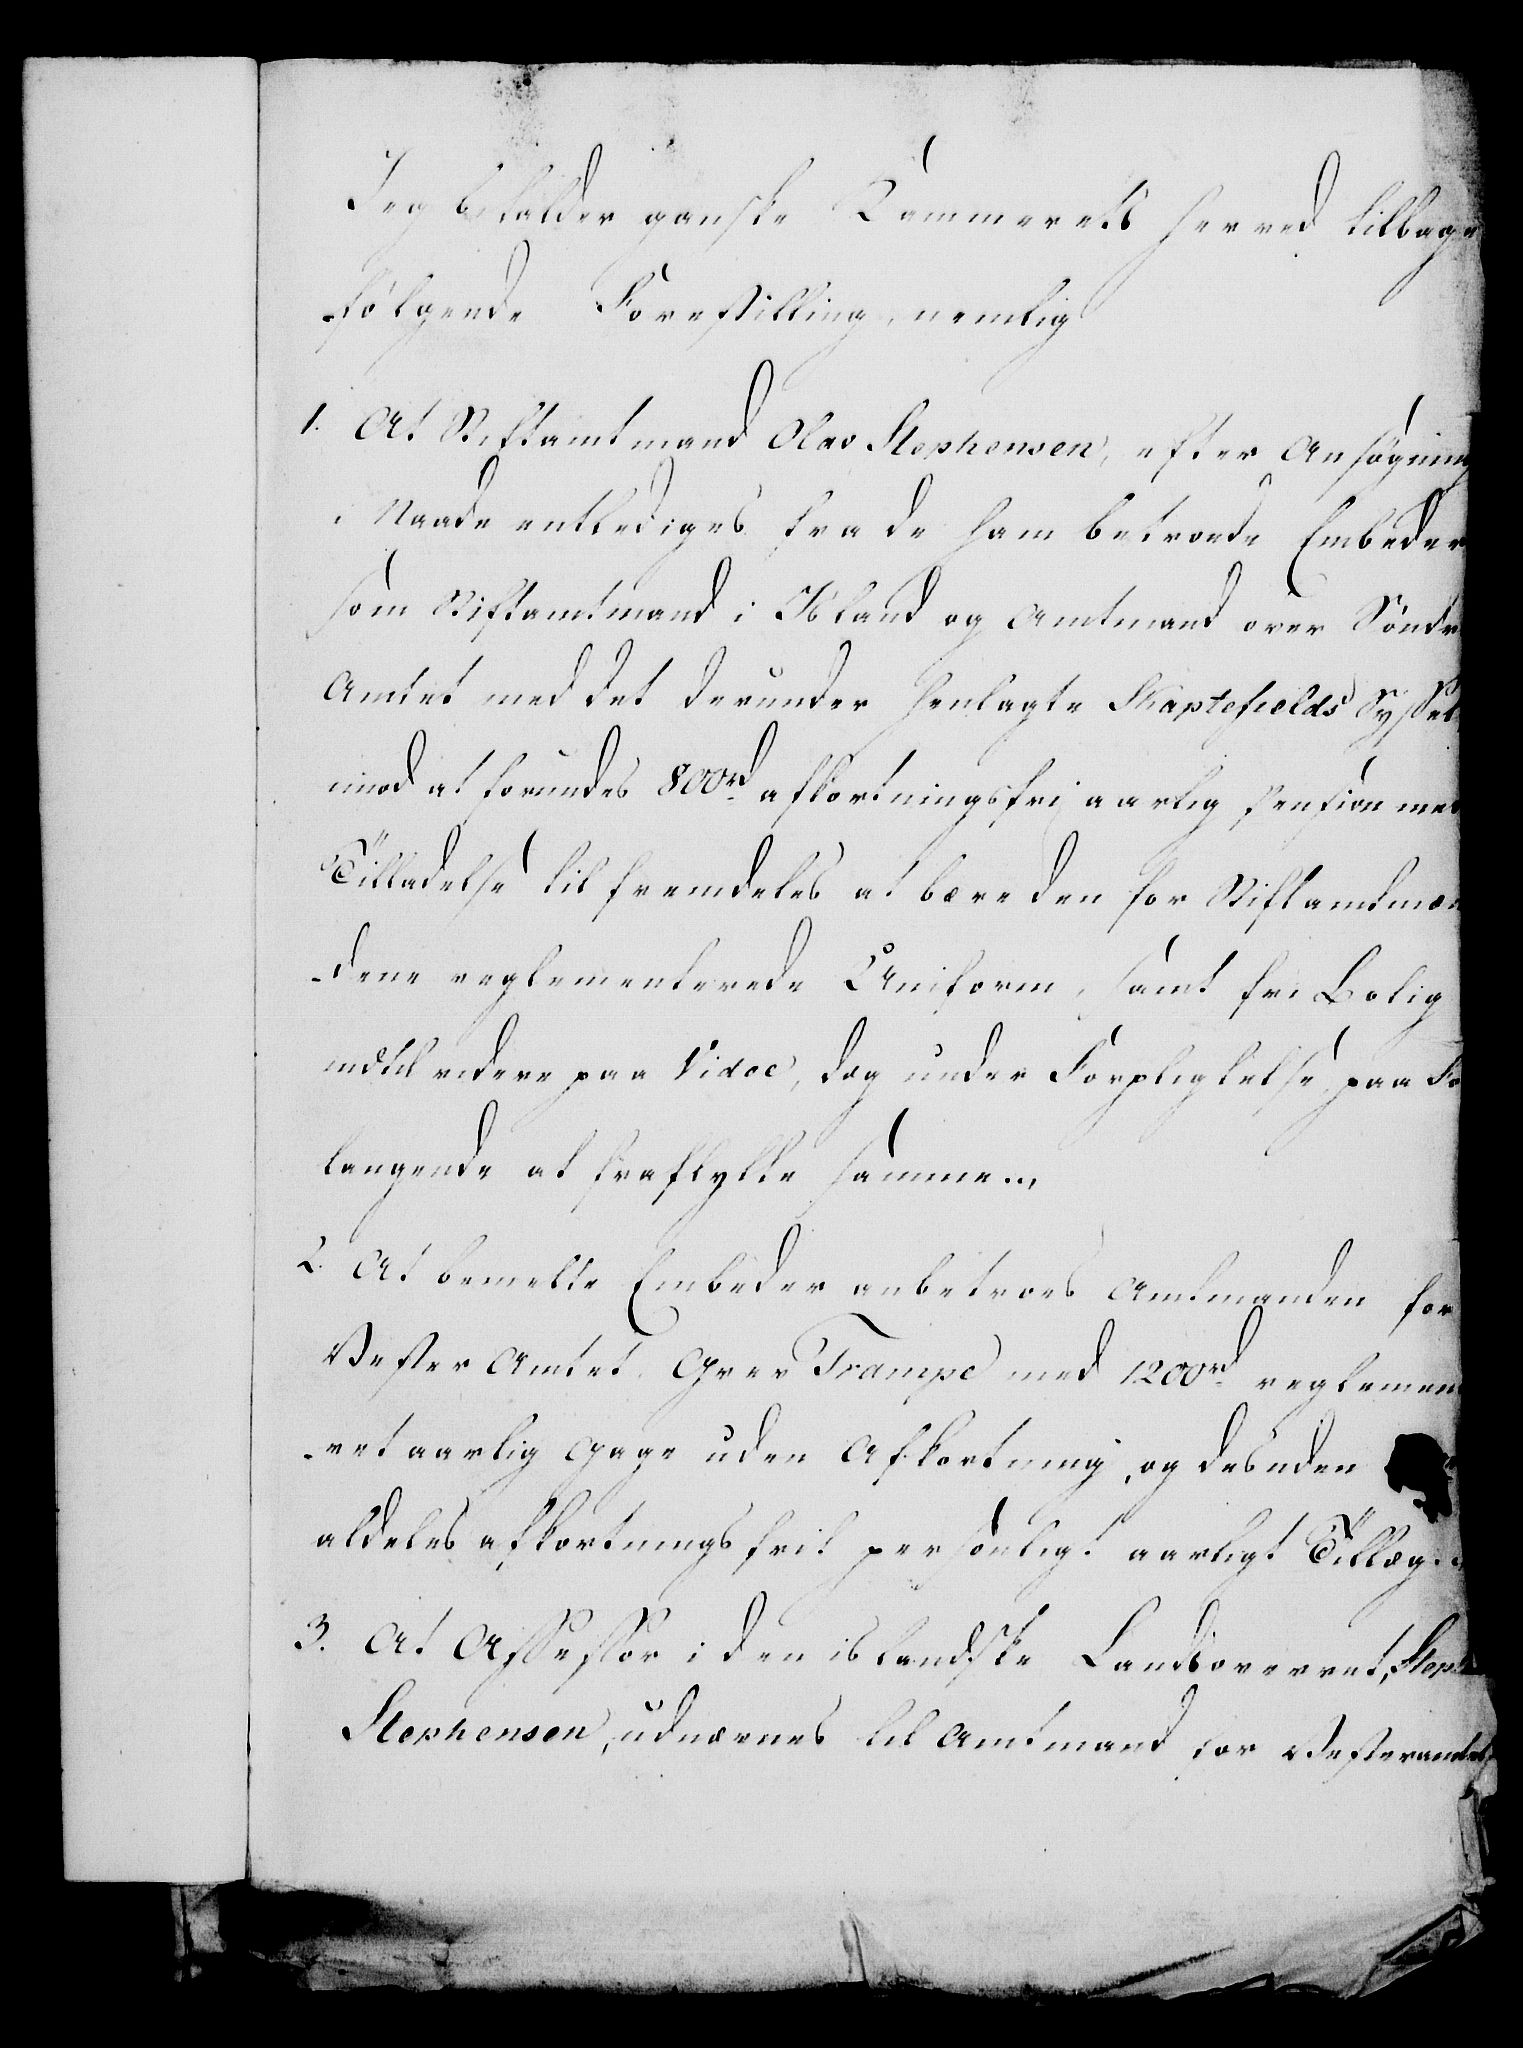 Jeg bifalder ganske Kammerets herved tilbage
følgende Forestilling, nemlig
1. At Stiftamtmand Olav Stephensen, efter Ansøgning
i Naade entlediges fra de ham betroede Embeder
som Stiftamtmand i Island og Amtmand over Sönder
Amtet med det derunder henlagte Skaptefields Syssel
imod at forundes 800rd afkortningsfri aarlig Pension med
Tilladelse til fremdeles at bære den for Stiftamtmæn
-dene reglementerede Uniform, samt fri Bolig
indtil videre paa Vidöe, dog under Forpligtelse, paa For
langende at fraflytte samme.,
2. At bemelte Embeder anbetroes Amtmanden for
Vester Amtet Grev Trampe med 1200rd reglemen
-ret aarlig Gage uden Afkortning, og desuden
aldeles afkortningsfrit personligt aarligt Tillæg.,
3. At Assessor i den islandske Landsoverret, Steph
Stephensen, udnævnes til Amtmand for Vesteramtet,